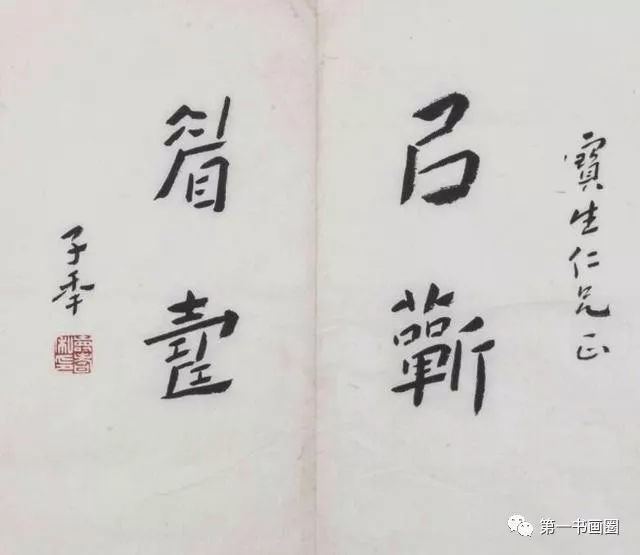 寶生仁兄正
㠯蘄
眉壽
子
第一书画圈